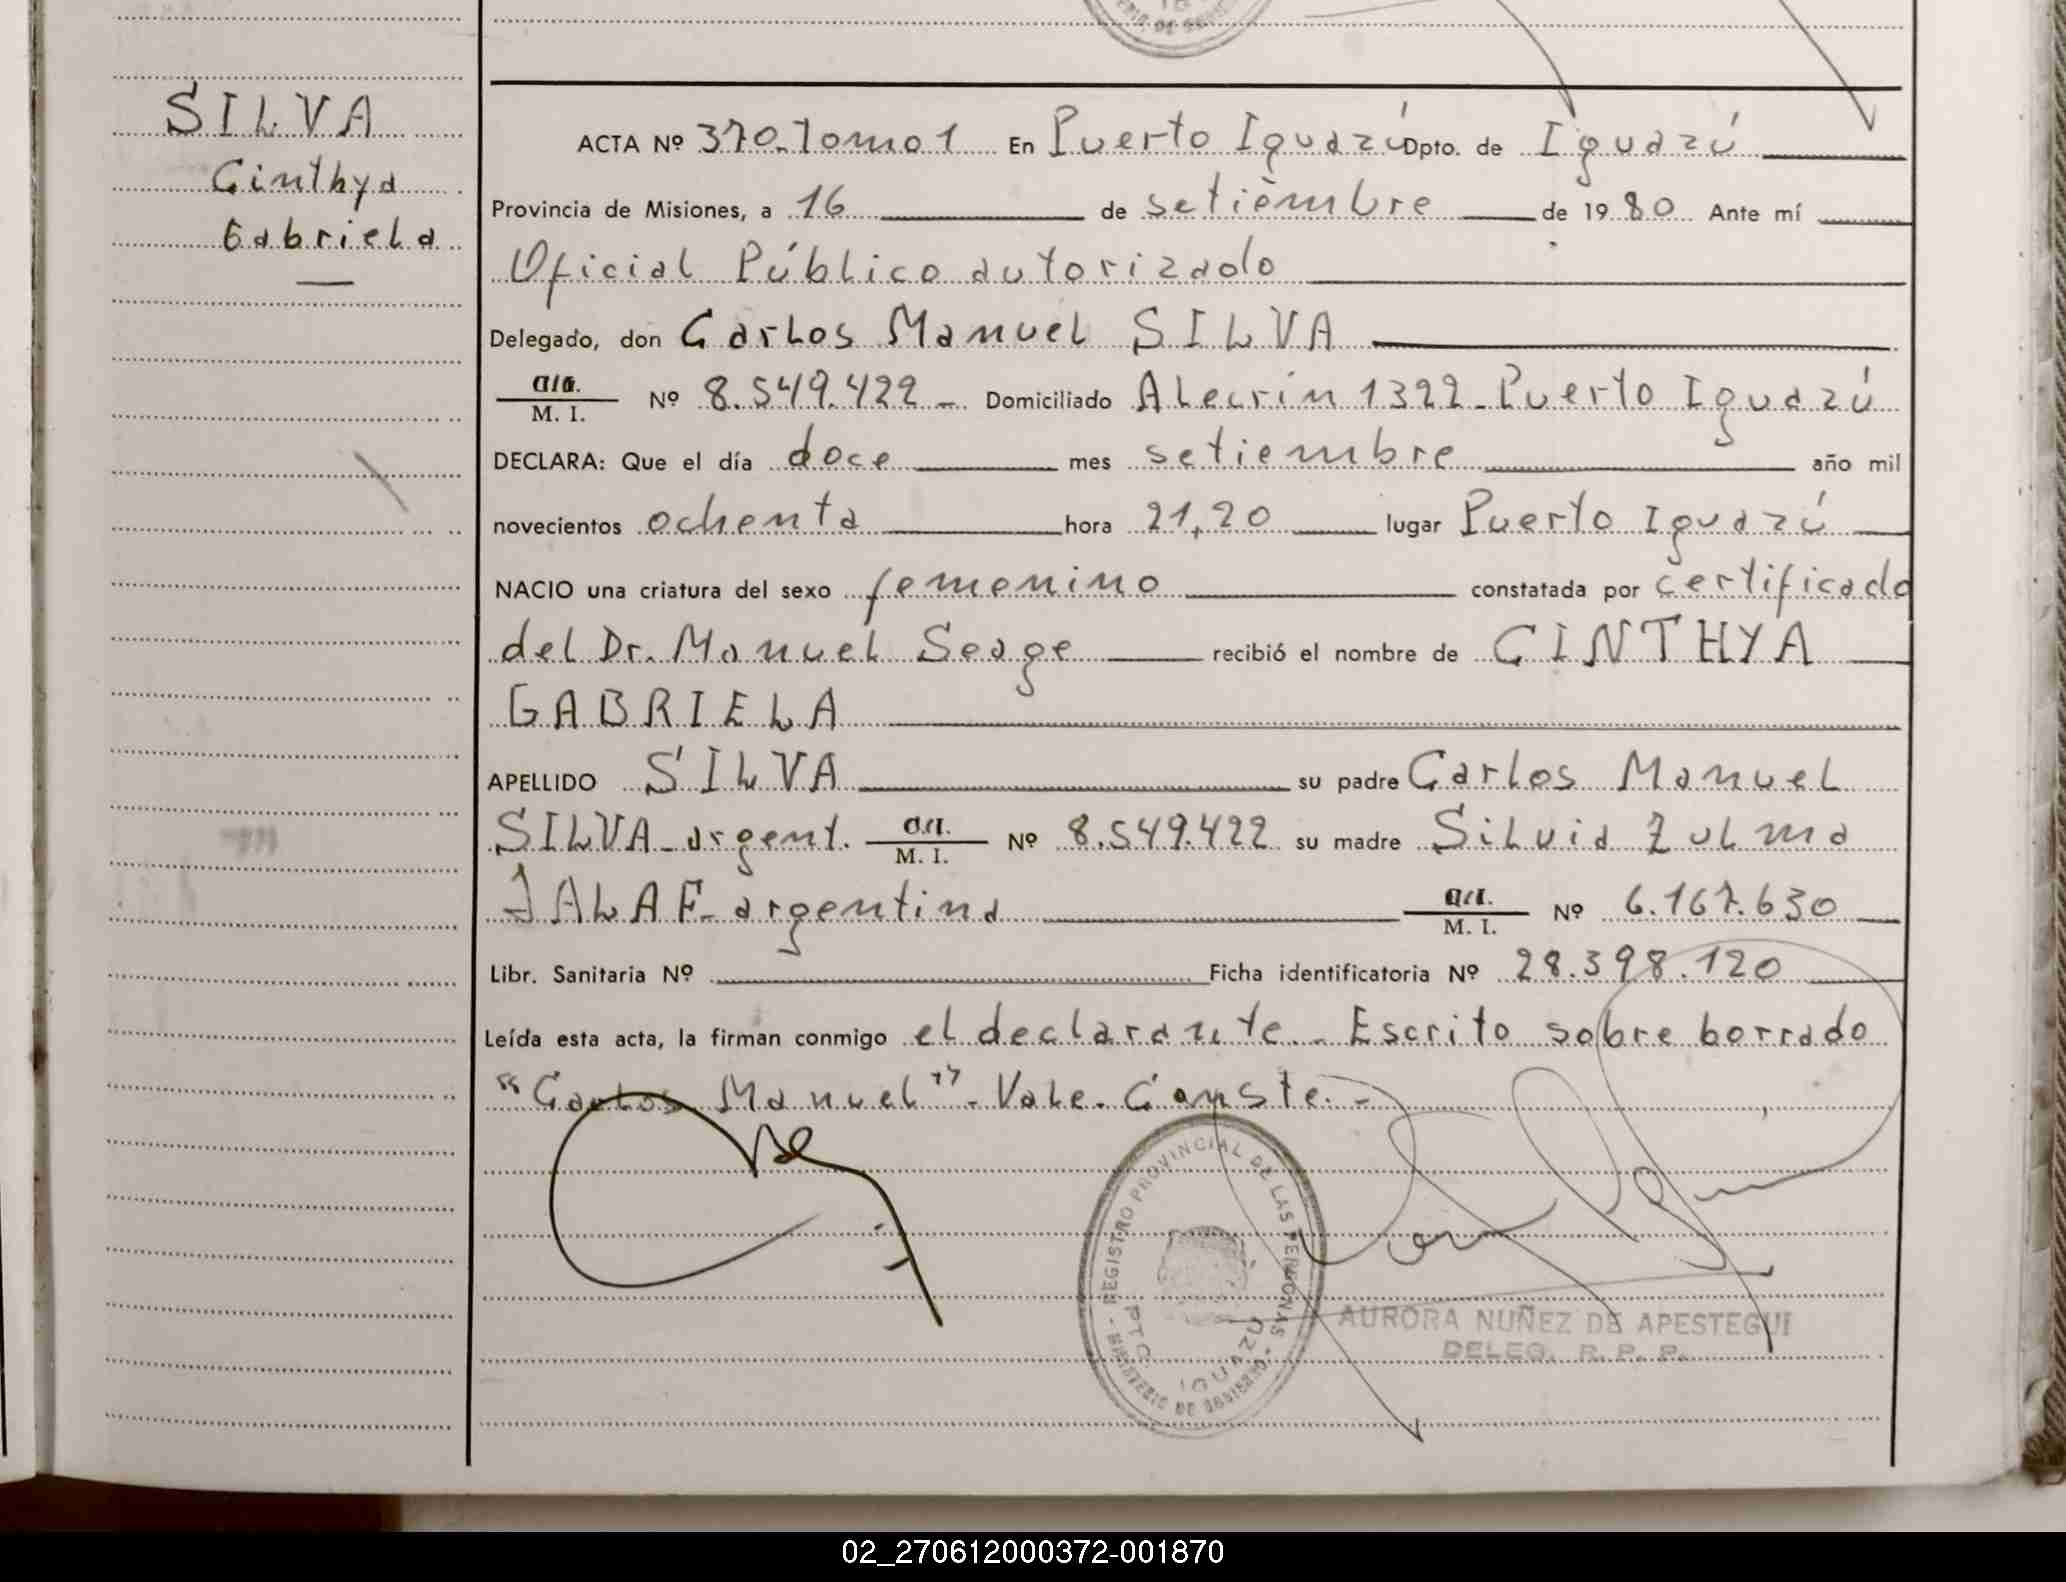 SILVA
Cinthya
Gabriela
ACTA Nº 370. Tomo 1 En Puerto Iguazú Dpto. de Iguazú
Provincia de Misiones, a 16 de setiembre de 1980 Ante mí
Oficial Público autorizado
Delegado, don Carlos Manuel SILVA
M. I. Nº 8.549.422 - Domiciliado Alecrín 1322 - Puerto Iguazú
DECLARA: Que el día doce mes setiembre año mil
novecientos ochenta hora 21,20 lugar Puerto Iguazú
NACIO una criatura del sexo femenino constatada por certificado
del Dr. Manuel Seage recibió el nombre de CINTHYA
GABRIELA
APELLIDO SILVA su padre Carlos Manuel
SILVA - argent. M. I. Nº 8.549.422 su madre Silvia Zulma
JALAF - argentina M. I. Nº 6.167.630
Libr. Sanitaria Nº Ficha identificatoria Nº 28.398.120
Leída esta acta, la firman conmigo el declarante. - Escrito sobre borrado
"Carlos Manuel" - Vale. Conste. -
REGISTRO PROVINCIAL DE LAS PERSONAS - MINISTERIO DE GOBIERNO -
PTO. IGUAZU
AURORA NUÑEZ DE APESTEGUI
DELEG. R. P. P.
02_270612000372-001870